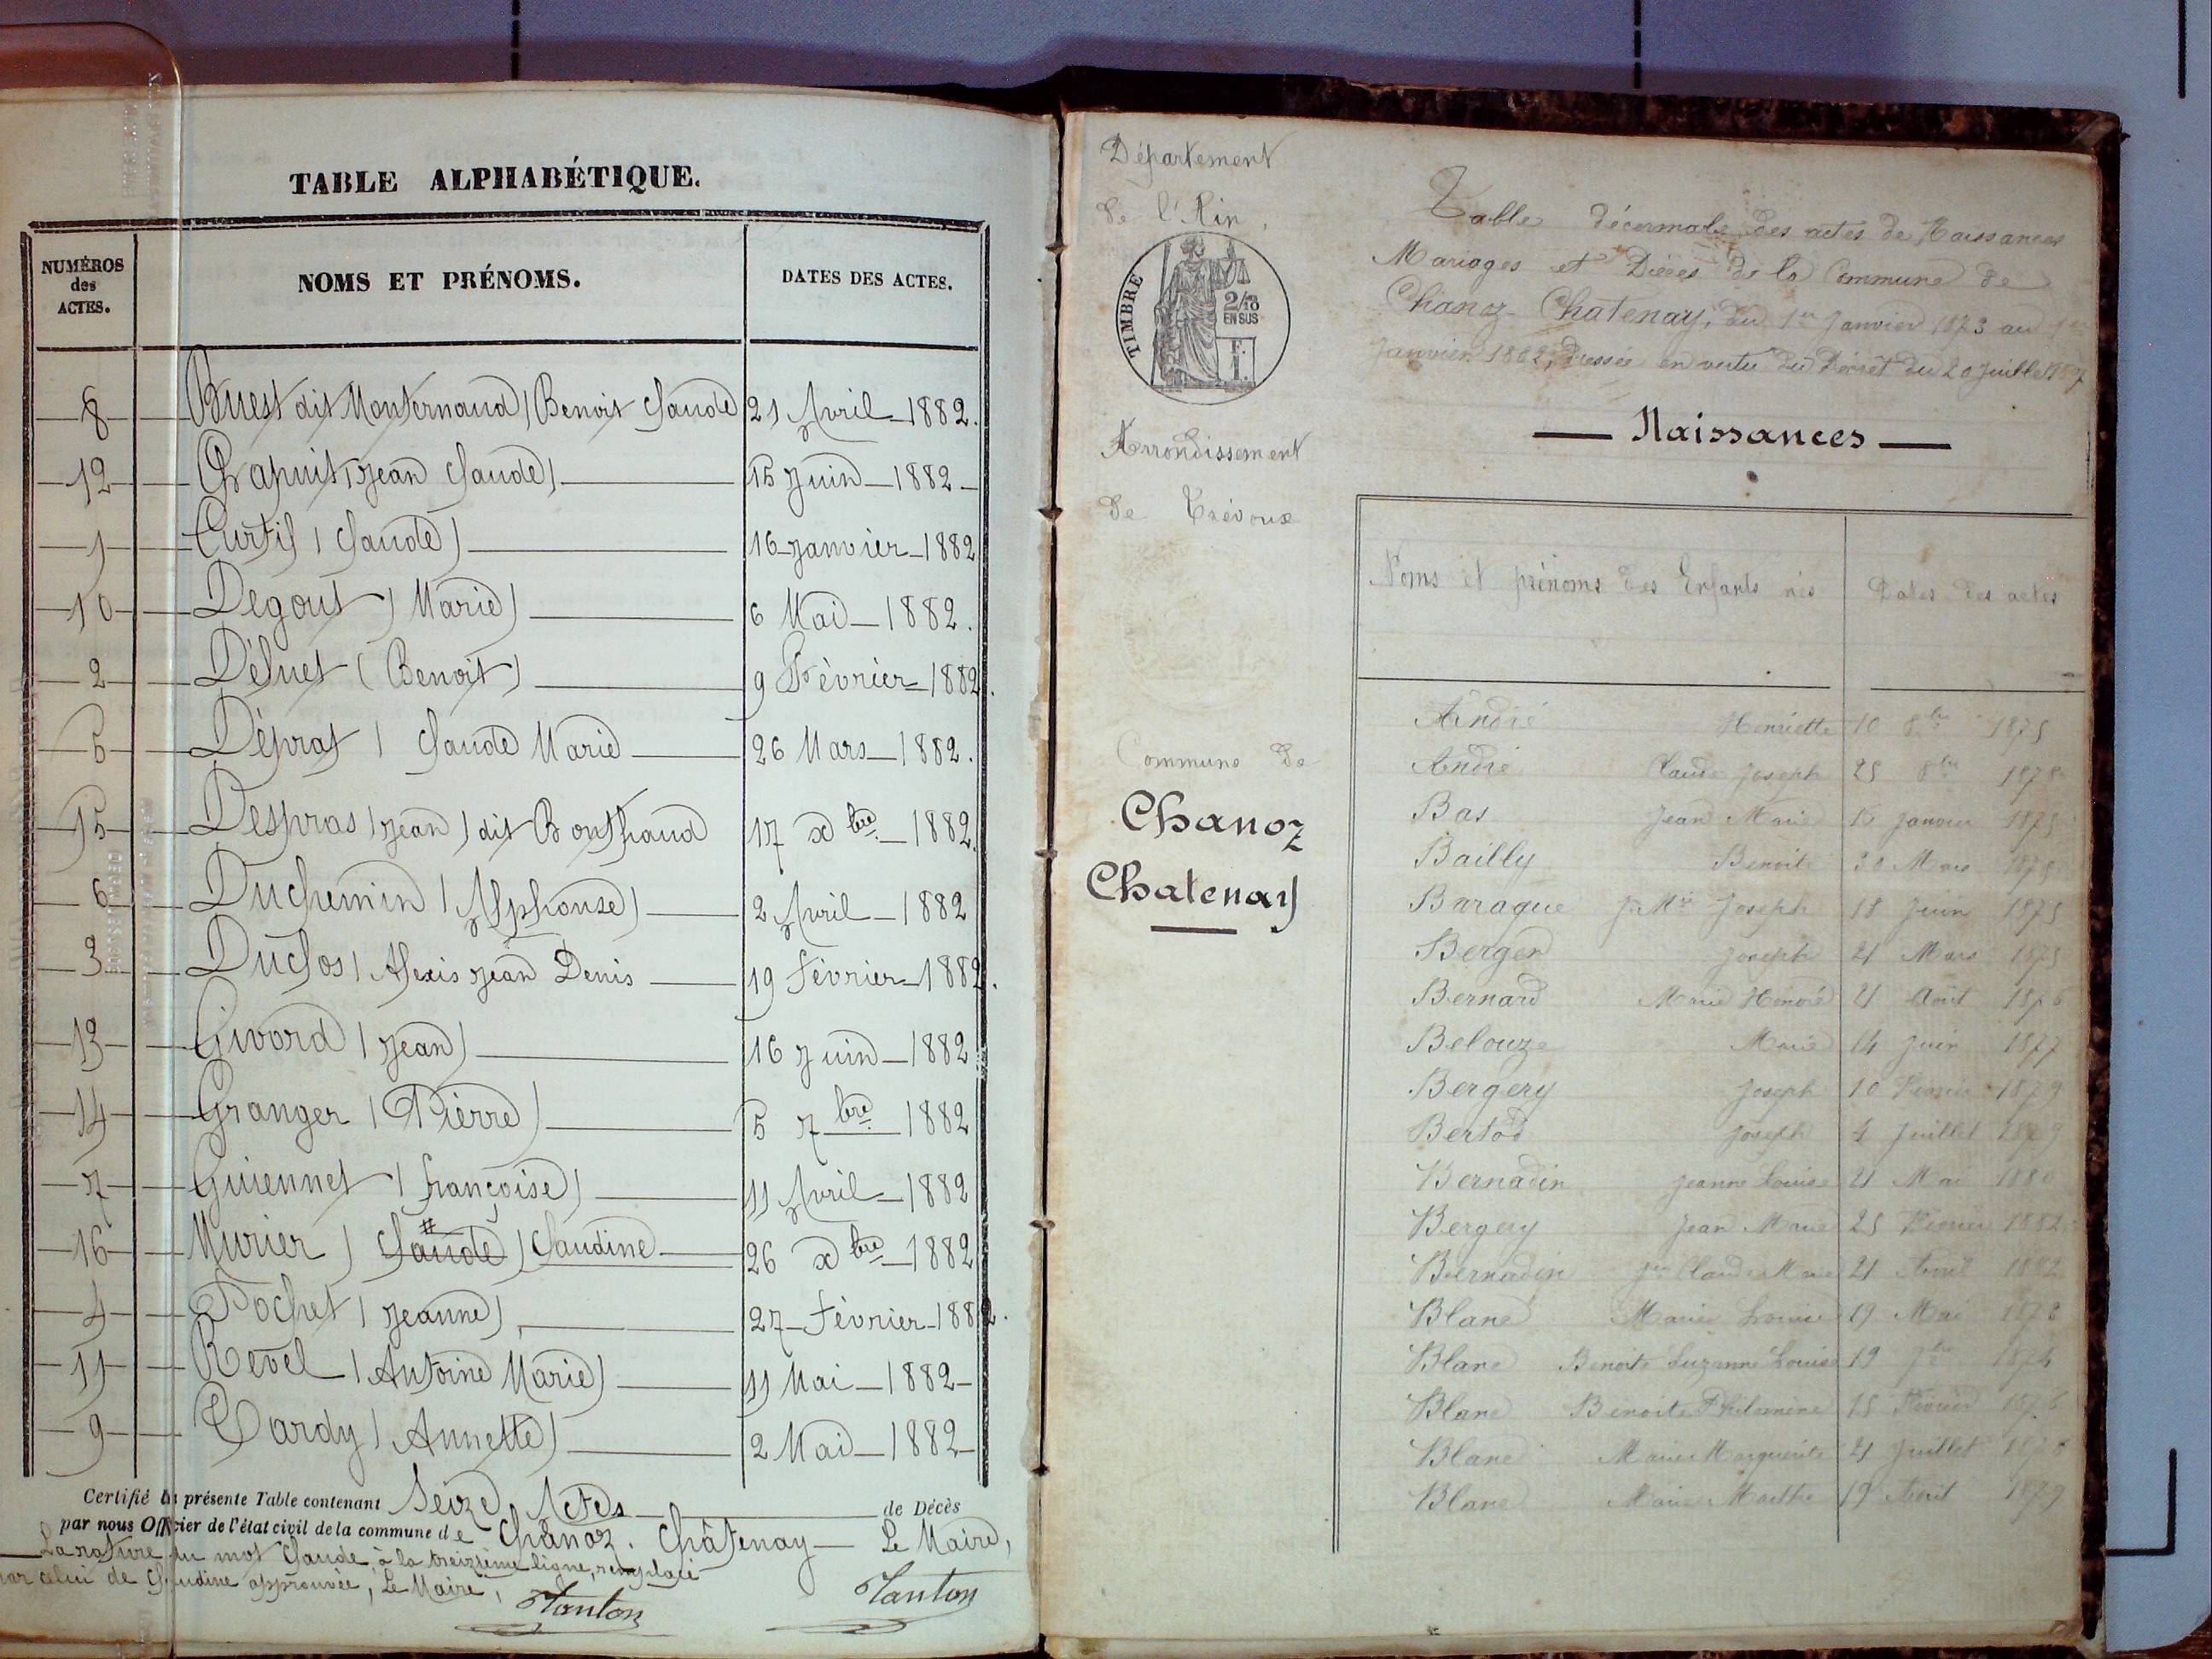 TABLE ALPHABÉTIQUE.
NUMÉROS des ACTES.
NOMS ET PRÉNOMS.
DATES DES ACTES.
8 Buest dit Monternaud (Benoit Claude 21 Avril 1882.
12 Chapuit (Jean Claude) 15 Juin 1882
1 Curtil (Claude) 16 Janvier 1882
10 Degout (Marie) 6 Mai 1882.
2 Déluet (Benoit) 9 Février 1882.
5 Dépras (Claude Marie 26 Mars 1882.
15 Despras (Jean) dit Bonthaud 17 xbre 1882.
6 Duchemin (Alphonse) 2 Avril 1882
3 Duclos (Alexis Jean Denis 19 Février 1882.
13 Givord (Jean) 16 Juin 1882
14 Granger (Pierre) 5 7bre 1882
7 Guiennet (Françoise) 11 Avril 1882
16 Murier (Claude) Claudine 26 xbre 1882
4 Pochet (Jeanne) 27 Février 1882.
11 Revel (Antoine Marie) 11 Mai 1882
9 Tardy (Annette) 2 Mai 1882
Certifié la présente Table contenant Seize Actes de Décès
par nous Officier de l'état civil de la commune de Chanoz-Châtenay Le Maire,
La rature du mot Claude, à la treizième ligne, remplacé
par celui de Claudine approuvée, Le Maire,
Tanton
Tanton
Département
de l'Ain,
TIMBRE
2/10
EN SUS
Arrondissement
de Trévoux
Commune de
Chanoz
Chatenay
Table décennale des actes de Naissances
Mariages et Décès de la Commune de
Chanoz-Chatenay, du 1er Janvier 1873 au 1er
Janvier 1882, dressée en vertu du Décret du 20 Juillet
Naissances
Noms et prénoms des Enfants nés
Dates des actes
André Henriette 10 8bre 1875
André Claude Joseph 25 8bre 1878
Bas Jean Marie Janvier 1875
Bailly Benoite 30 Mars 1875
Barague Jn Mie Joseph 18 Juin 1875
Berger Joseph 21 Mars 1875
Bernard Marie Honoré 21 Août 1876
Belouze Marie 14 Juin 1877
Bergery Joseph 10 Février 1879
Bertod Joseph 4 Juillet 1879
Bernadin Jeanne Louise 21 Mai 1880
Bergery Jean Marie 25 Février 1882
Bernadin Claude Marie 21 Août 1882
Blanc Marie Louise 19 Mai 1873
Blanc Benoite Suzanne Louise 19 7bre 1874
Blanc Benoite Philomine 15 Février 1876
Blanc Marie Marguerite 21 Juillet 1878
Blanc Marie Marthe 19 Août 1879